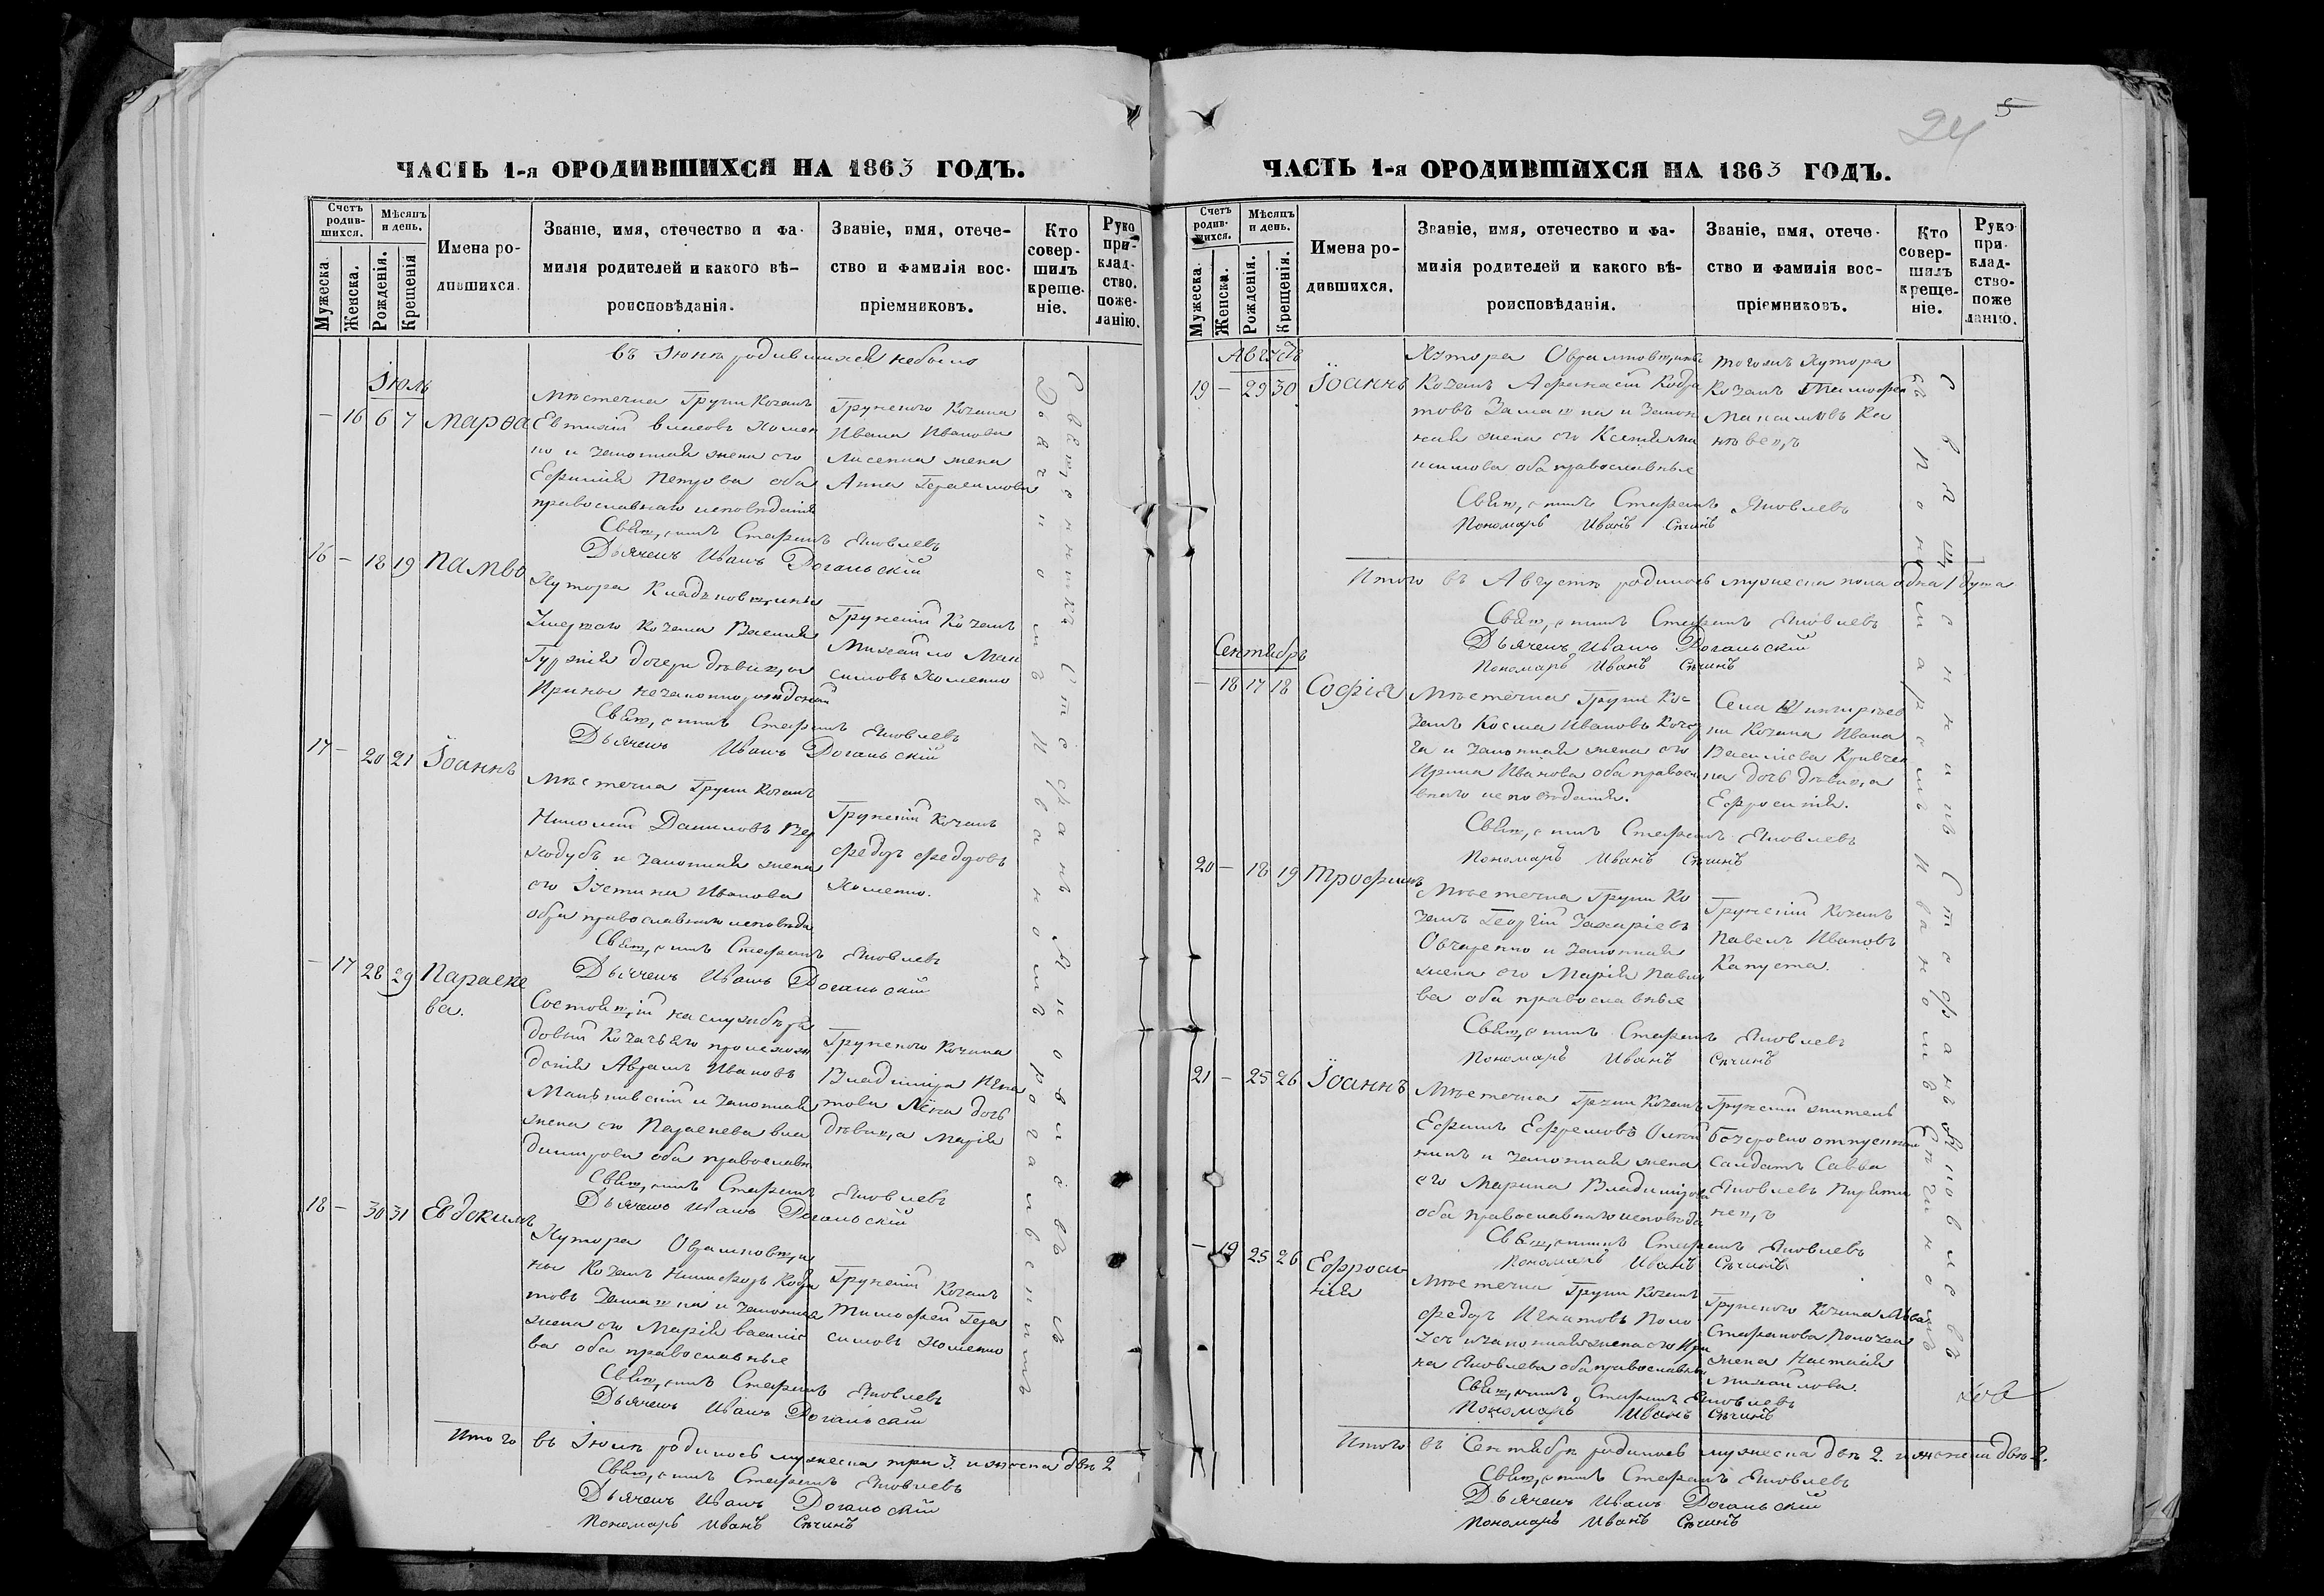 ЧАСТЬ 1-я ОРОДИВШИХСЯ НА 1863 ГОДЪ.
Счетъ родив-шихся.
Мѣсяцъ и день.
Мужеска.
Женска.
Рожденія.
Крещенія
Имена ро-
дившихся.
Званіе, имя, отечество и фа-
милія родителей и какого вѣ-
роисповѣданія.
Званіе, имя, отече-
ство и фамилія вос-
пріемниковъ.
Кто совер-шилъ креще-ніе.
Руко при-клад-ство. поже-ланію.
въ Іюнѣ родившихся небыло
Іюль
— 16 6 7 Марѳа
Мѣстечка Груни Козакъ
Евтихій Власовъ Хомен
ко и законная жена его
Ефимія Петрова оба
православнаго исповѣданія
Грунского Козака
Ивана Иванова
Лисенка жена
Анна Герасимова
Священникъ Стефанъ Яковлевъ
Дьячекъ Иванъ Рогальскій
16 — 18 19 Памво
Хутора
Умершаго Козака Василія
дочери дѣвицы
Ирины незаконнорожденный
Грунскій Козакъ
Михайло Мак
симовъ Хоменко
Священникъ Стефанъ Яковлевъ
Дьячекъ Иванъ Рогальскій
17 — 20 21 Іоаннъ
Мѣстечка Груни Козакъ
Николай Даниловъ Вер
ходубъ и законная жена
его Іустина Иванова
оба православнаго исповѣда
Грунскій Козакъ
Федоръ Федоровъ
Хоменко.
Священникъ Стефанъ Яковлевъ
Дьячекъ Иванъ Рогальскій
— 17 28 29 Параске
ва.
Состоящій наслужбѣ ря
довый Козачьяго происхож
денія Аврамъ Ивановъ
и законная
жена его Параскева Вла
димирова оба православн
Грунского Козака
Владиміра Игна
това дочь
дѣвица Марія
Священникъ Стефанъ Яковлевъ
Дьячекъ Иванъ Рогальскій
18 — 30 31 Евдокимъ
Хутора Абрамовщи
ны Козакъ Никифоръ Кодра
товъ Замашка и законная
жена его Марія Василіе
ва оба православные
Грунскій Козакъ
Тимофей Гера
симовъ Хоменко
Священникъ Стефанъ Яковлевъ
Дьячекъ Иванъ Рогальскій
Итого въ Іюлѣ родилось мужеска три 3 и женска двѣ 2
Священникъ Стефанъ Яковлевъ
Дьячекъ Иванъ Рогальскій
Пономарь Иванъ Сѣчинъ
Священникъ Стефанъ Яковлевъ съ
Дьячкомъ Иваномъ Рогальскимъ
24
5
ЧАСТЬ 1-я ОРОДИВШИХСЯ НА 1863 ГОДЪ.
Счетъ родив-шихся.
Мѣсяцъ и день.
Мужеска.
Женска.
Рожденія.
Крещенія.
Имена ро-
дившихся.
Званіе, имя, отечество и фа-
милія родителей и какого вѣ-
роисповѣданія.
Званіе, имя, отече-
ство и фамилія вос-
пріемниковъ.
Кто совер-шилъ креще-ніе.
Руко при-клад-ство поже ланію.
Августъ
19 — 29 30 Іоаннъ
Хутора Абрамовщины
Козакъ Афанасій Кодра
товъ Замашка и закон
ная жена его Ксенія Ма
ксимова оба православные
тогожъ Хутора
Козакъ Тимофей
Максимовъ
Священникъ Стефанъ Яковлевъ
Пономарь Иванъ Сѣчинъ
Итого въ Августѣ родилось мужеска пола одна 1 душа
Священникъ Стефанъ Яковлевъ
Дьячекъ Иванъ Рогальскій
Пономарь Иванъ Сѣчинъ
Сентябрь
— 18 17 18 Софія
Мѣстечка Груни Ко-
закъ Косма Ивановъ
и законная жена его
Ирина Иванова оба правосла
внаго исповѣданія.
Села
Козака Ивана
Василіева Кривчен
ка дочь дѣвица
Ефросинія.
Священникъ Стефанъ Яковлевъ
Пономарь Иванъ Сѣчинъ
20 — 18 19 Трофимъ
Мѣстечка Груни Ко
закъ Георгій Захаріевъ
Овчаренко и законная
жена его Марія Павло
ва оба православные
Грунскій Козакъ
Павелъ Ивановъ
Капуста.
Священникъ Стефанъ Яковлевъ
Пономарь Иванъ Сѣчинъ
21 — 25 26 Іоаннъ
Мѣстечка Груни Козакъ
Ефимъ Ефремовъ
и законная жена
его Марина Владимірова
оба православнаго исповѣда
Грунскій житель
безсрочно отпускной
Салдатъ Савва
Яковлевъ
Священникъ Стефанъ Яковлевъ
Пономарь Иванъ Сѣчинъ
— 19 25 26 Ефроси
нія
Мѣстечка Груни Козакъ
Федоръ Игнатовъ
и законная жена его Ири
на Яковлева оба православны
Грунского Козака
Стефанова
жена Настасія
Михайлова.
Священникъ Стефанъ Яковлевъ
Пономарь Иванъ Сѣчинъ
Итого въ Сентябрѣ родилось мужеска двѣ 2. и женска двѣ 2.
Священникъ Стефанъ Яковлевъ
Дьячекъ Иванъ Рогальскій
Пономарь Иванъ Сѣчинъ
Священникъ Стефанъ Яковлевъ
съ Пономаремъ Иваномъ Сѣчинымъ